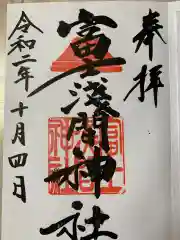 奉拝
富士浅間神社
令和二年十月四日